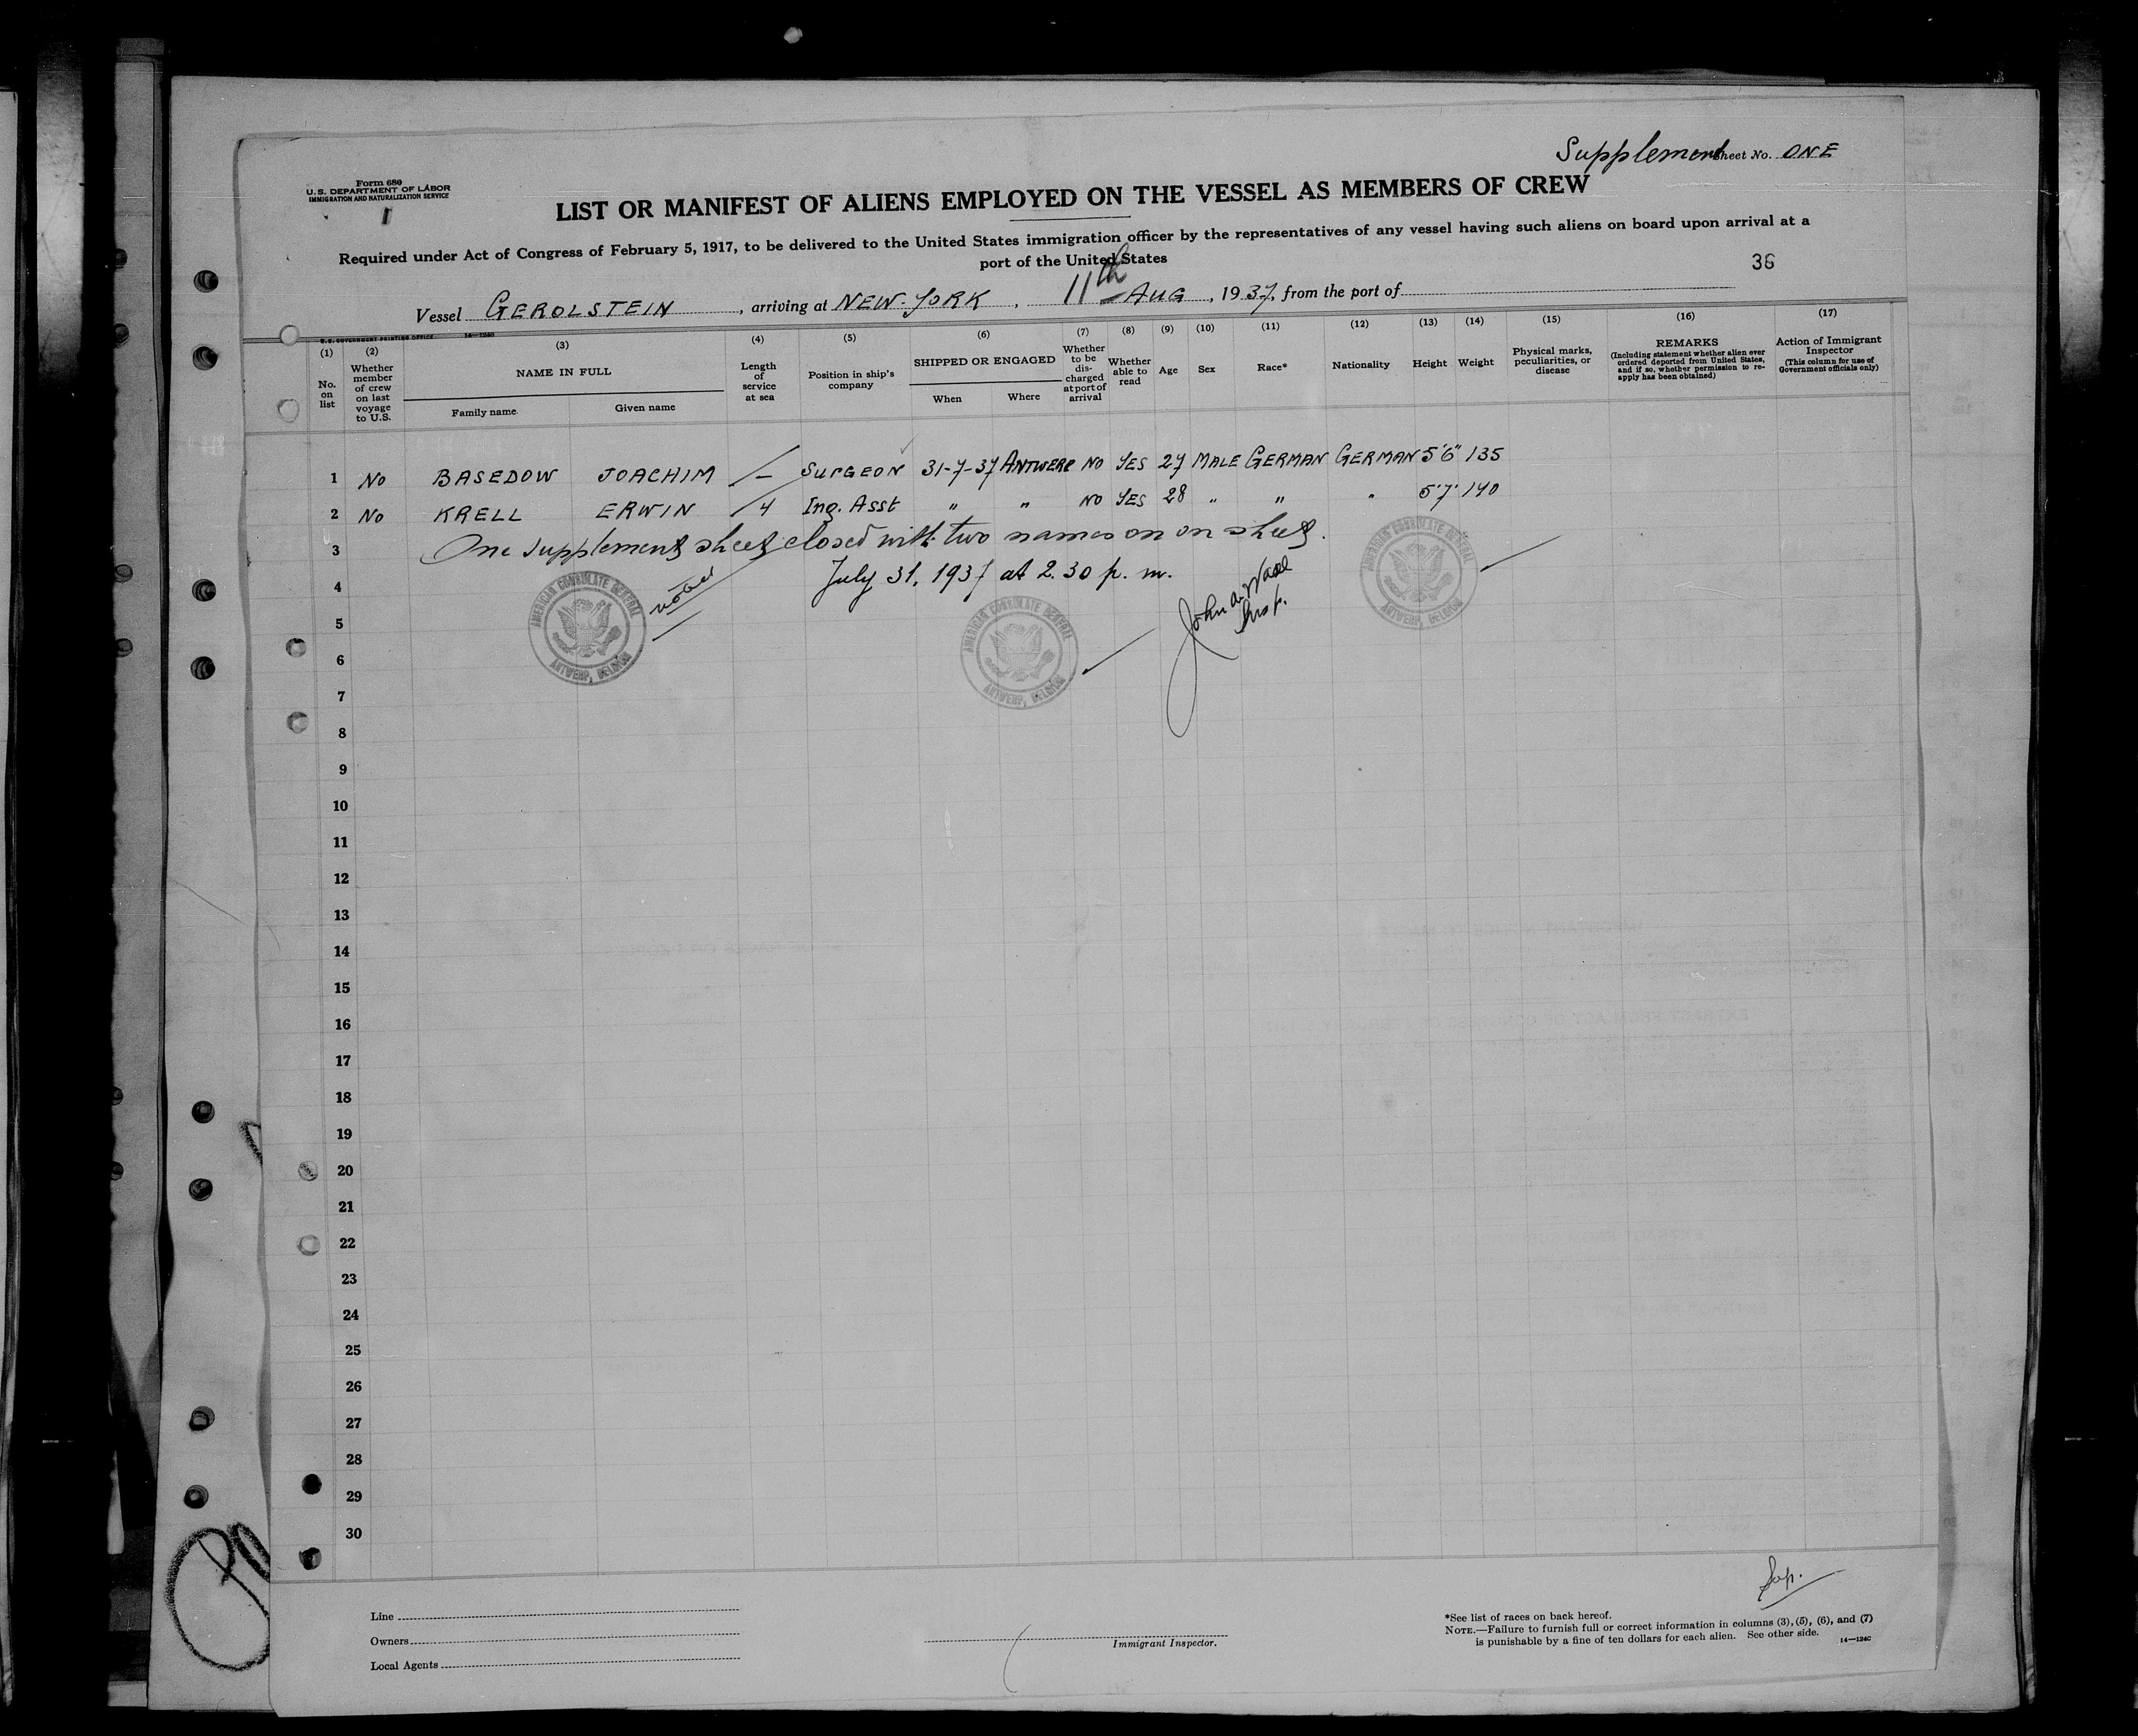 Supplement Sheet No. ONE
Form 680
U.S. DEPARTMENT OF LABOR
IMMIGRATION AND NATURALIZATION SERVICE
1
LIST OR MANIFEST OF ALIENS EMPLOYED ON THE VESSEL AS MEMBERS OF CREW
Required under Act of Congress of February 5, 1917, to be delivered to the United States immigration officer by the representatives of any vessel having such aliens on board upon arrival at a
port of the United States
36
Vessel GEROLSTEIN, arriving at NEW-YORK, 11th AUG, 1937, from the port of
U.S. GOVERNMENT PRINTING OFFICE 14—1240
(1) (2) (3) (4) (5) (6) (7) (8) (9) (10) (11) (12) (13) (14) (15) (16) (17)
No. on list
Whether member of crew on last voyage to U.S.
NAME IN FULL
Family name
Given name
Length of service at sea
Position in ship's company
SHIPPED OR ENGAGED
When
Where
Whether to be discharged at port of arrival
Whether able to read
Age
Sex
Race*
Nationality
Height
Weight
Physical marks, peculiarities, or disease
REMARKS
(Including statement whether alien ever ordered deported from United States, and if so, whether permission to reapply has been obtained)
Action of Immigrant Inspector
(This column for use of Government officials only)
1 No BASEDOW JOACHIM — SURGEON 31-7-37 ANTWERP NO YES 27 MALE GERMAN GERMAN 5'6" 135
2 No KRELL ERWIN 4 Ing. Asst " " NO YES 28 " " " 5'7" 140
3 One supplement sheet closed with two names on on sheet.
4 July 31, 1937 at 2.30 p. m.
AMERICAN CONSULATE GENERAL
ANTWERP, BELGIUM
noted
AMERICAN CONSULATE GENERAL
ANTWERP, BELGIUM
AMERICAN CONSULATE GENERAL
ANTWERP, BELGIUM
John
Insp.
5
6
7
8
9
10
11
12
13
14
15
16
17
18
19
20
21
22
23
24
25
26
27
28
29
30
Line
Owners
Local Agents
Immigrant Inspector.
*See list of races on back hereof.
NOTE.—Failure to furnish full or correct information in columns (3), (5), (6), and (7)
is punishable by a fine of ten dollars for each alien. See other side.
14—1240